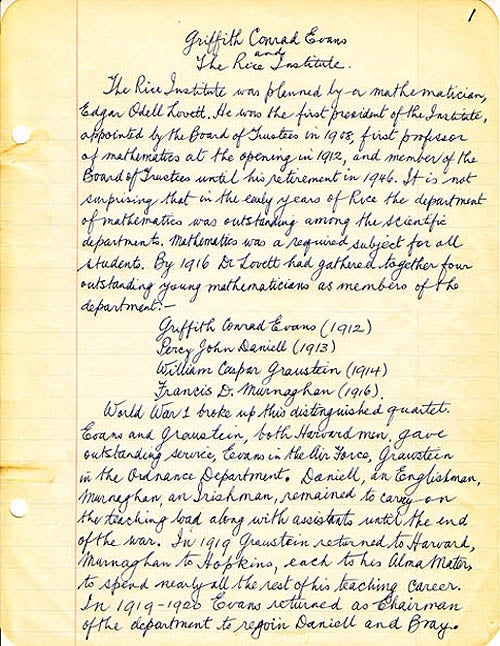 1
Griffith Conrad Evans
and
The Rice Institute.
The Rice Institute was planned by a mathematician,
Edgar Odell Lovett. He was the first president of the Institute,
appointed by the Board of Trustees in 1908, first professor
of mathematics at the opening in 1912, and member of the
Board of Trustees until his retirement in 1946. It is not
surprising that in the early years of Rice the department
of mathematics was outstanding among the scientific
departments. Mathematics was a required subject for all
students. By 1916 Dr Lovett had gathered together four
outstanding young mathematicians as members of the
department:-
Griffith Conrad Evans (1912)
Percy John Daniell (1913)
William Caspar Graustein (1914)
Francis D. Murnaghan (1916)
World War 1 broke up this distinguished quartet.
Evans and Graustein, both Harvard men, gave
outstanding service, Evans in the Air Force, Graustein
in the Ordnance Department. Daniell, an Englishman,
Murnaghan, an Irishman, remained to carry on
the teaching load along with assistants until the end
of the war. In 1919 Graustein returned to Harvard,
Murnaghan to Hopkins, each to his Alma Mater,
to spend nearly all the rest of his teaching career.
In 1919-1920 Evans returned as Chairman
of the department to rejoin Daniell and Bray.